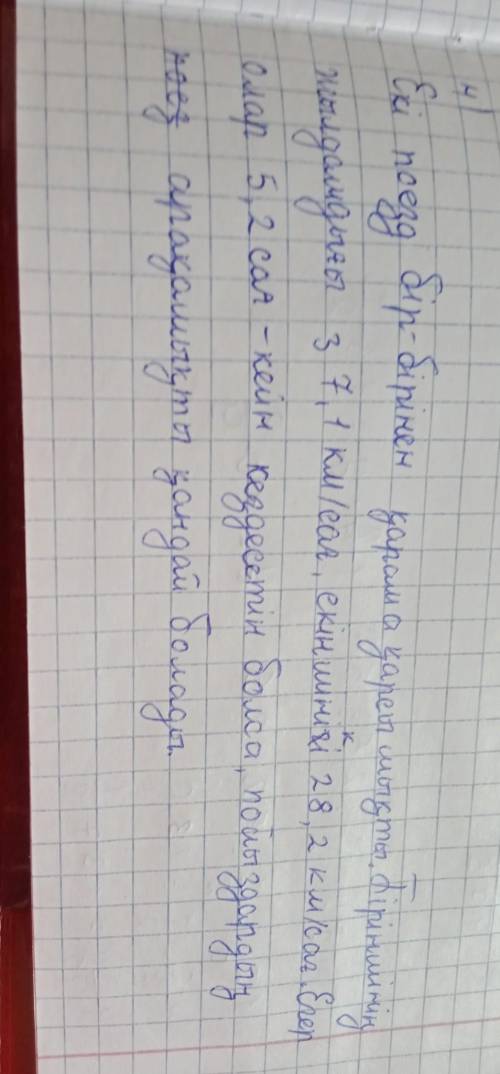 н/
Екі поезд бір-бірінен қарама қарсы шықты. Біріншінің
жылдамдығы 37,1 км/сағ, екіншінікі 28,2 км/сағ. Егер
олар 5,2 сағ-кейн кездесетін болса, пойыздардың
поез арақашықты қандай болады.